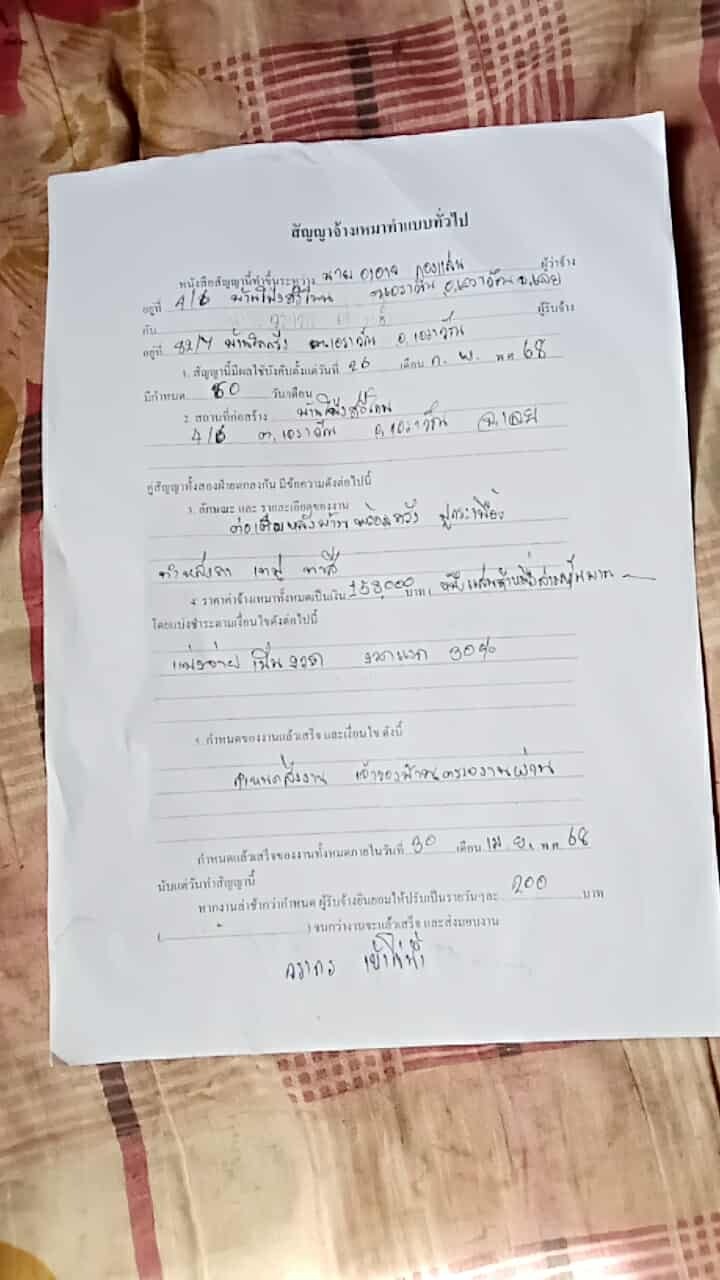 สัญญาจ้างเหมาทำแบบทั่วไป
หนังสือสัญญานี้ทำขึ้นระหว่าง นาย ผู้ว่าจ้าง
อยู่ที่ 4/6 ต.เอราวัณ อ.เอราวัณ จ.เลย
กับ ผู้รับจ้าง
อยู่ที่ 82/7 ต.เอราวัณ อ.เอราวัณ
1. สัญญานี้มีผลใช้บังคับตั้งแต่วันที่ 26 เดือน ก.พ. พ.ศ. 68
มีกำหนด 60 วัน/เดือน
2. สถานที่ก่อสร้าง
4/6 ต.เอราวัณ อ.เอราวัณ จ.เลย
คู่สัญญาทั้งสองฝ่ายตกลงกัน มีข้อความดังต่อไปนี้
3. ลักษณะ และ รายละเอียดของงาน
ต่อเติมหลังบ้าน พร้อมครัว ปูกระเบื้อง
ทำหลังคา เทปูน ทาสี
4. ราคาค่าจ้างเหมาทั้งหมดเป็นเงิน 158,000 บาท (
โดยแบ่งชำระตามเงื่อนไขดังต่อไปนี้
แบ่งจ่ายเป็นงวด งวดแรก 30%
5. กำหนดของงานแล้วเสร็จ และเงื่อนไข ดังนี้
กำหนดส่งงาน เจ้าของบ้านตรวจงานผ่าน
กำหนดแล้วเสร็จของงานทั้งหมดภายในวันที่ 30 เดือน เม.ย. พ.ศ. 68
นับแต่วันทำสัญญานี้
หากงานล่าช้ากว่ากำหนด ผู้รับจ้างยินยอมให้ปรับเป็นรายวันๆละ 200 บาท
( ) จนกว่างานจะแล้วเสร็จ และส่งมอบงาน